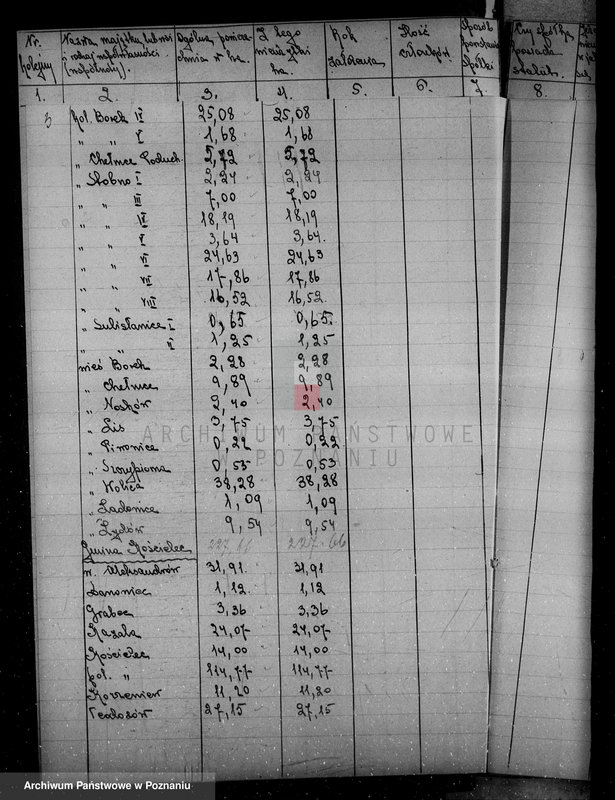 Nr. kolejny | Nazwa majątku lub wsi i rodzaj współwłasności (wspólnoty). | Ogólna powierzchnia w ha. | Z tego nieużytki ha. | Rok założenia | Ilość członków | Sposób powstania spółki | Czy spółka posiada statut
1. 2. 3. 4. 5. 6. 7 8.
3 Kol. Borek IV 25,08 25,08
" " V 1,68 1,68
" Chełmce Poduch. 5,72 5,72
" Słobno I 2,24 2,24
" " III 7,00 7,00
" " IV 18,19 18,19
" " V 3,64 3,64.
" " VI 24,63 24,63
" " VII 17,86 17,86
" " VIII 16,52 16,52
" Sulisławice I 0,65 0,65.
" " II 1,25 1,25
wieś Borek 2,28 2,28
" Chełmce 9,89 9,89
" Nosków 2,40 2,40
" Lis 3,75 3,75
" Piwonice 0,22 0,22
" Szczypiorna 0,53 0,53
" Wolica 38,28 38,28
" 1,09 1,09
" Żydów 9,54 9,54
Gmina Kościelec 227.66
w. Aleksandrów 31,91 31,91
1,12 1,12
Grabec 3,36 3,36
Kazala 24,07 24,07
Kościelec 14,00 14,00
kol. " 114,77 114,77
Korzeniew 11,20 11,20
Teodozów 27,15 27,15
ARCHIWUM PAŃSTWOWE
W POZNANIU
Archiwum Państwowe w Poznaniu